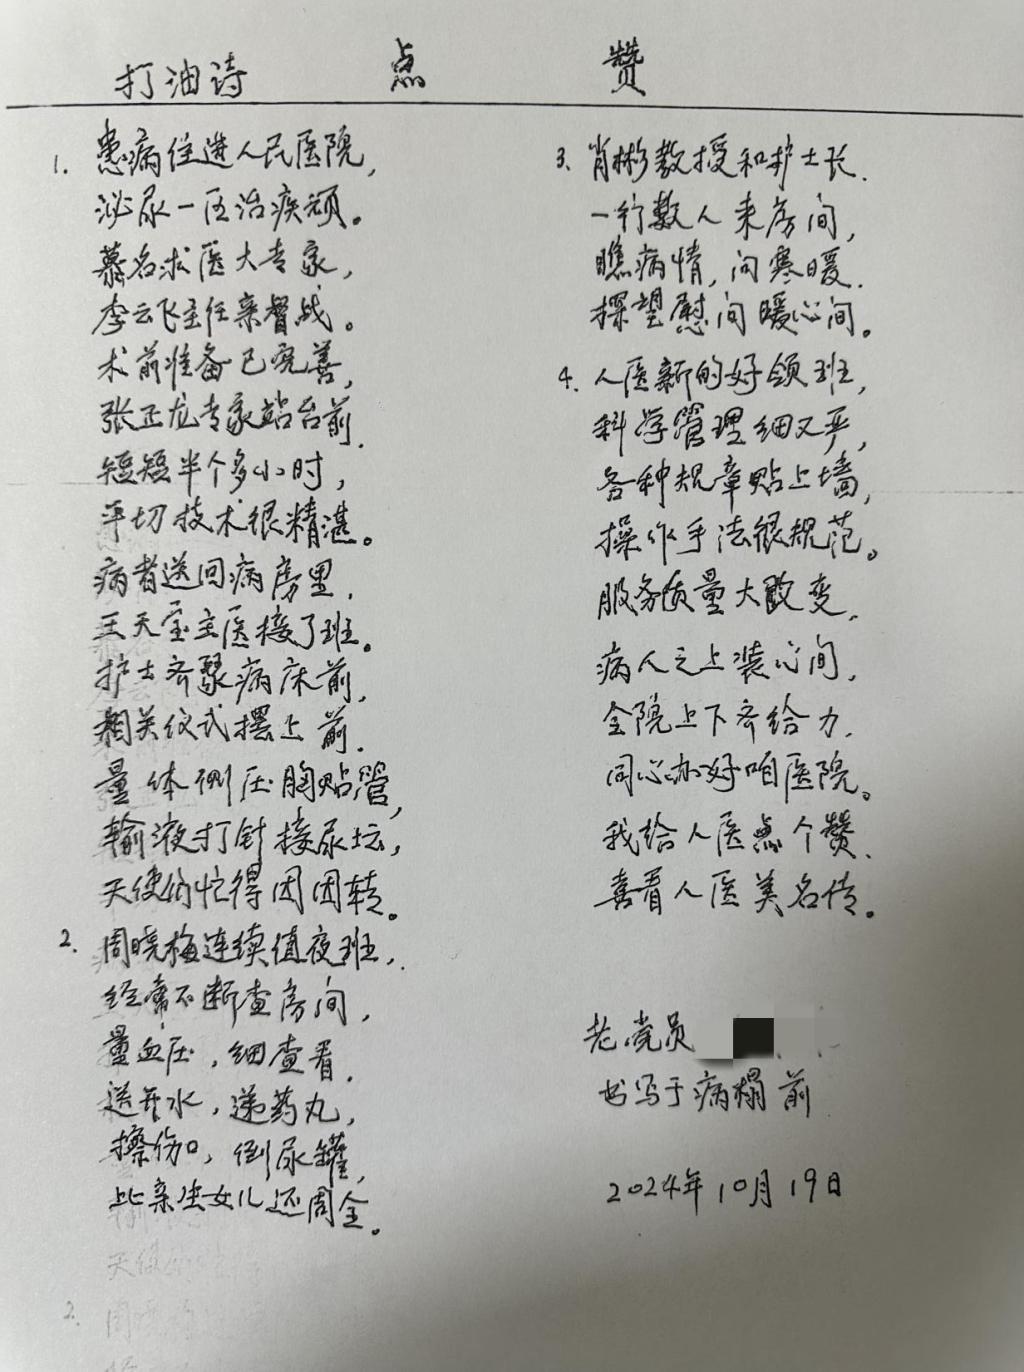 打油诗 点 赞
1. 患病住进人民医院,
泌尿一区治疾顽。
慕名求医大专家,
李云飞主任亲督战。
术前准备已完善,
张正龙专家站台前.
短短半个多小时,
平切技术很精湛。
病者送回病房里,
王天宝主医接了班。
护士齐聚病床前,
相关仪式摆上前.
量体侧压胸贴管,
输液打针接尿坛,
天使们忙得团团转。
2. 周晓梅连续值夜班,
经常不断查房间,
量血压,细查看.
送开水,递药丸,
擦伤口,倒尿罐,
比亲生女儿还周全。
3. 肖彬教授和护士长.
一行数人来房间,
瞧病情,问寒暖.
探望慰问暖心间。
4. 人医新的好领班,
科学管理细又严,
各种规章贴上墙,
操作手法很规范。
服务质量大改变.
病人之上装心间,
全院上下齐给力.
同心办好咱医院。
我给人医点个赞.
喜看人医美名传。
老党员
书写于病榻前
2024年10月19日